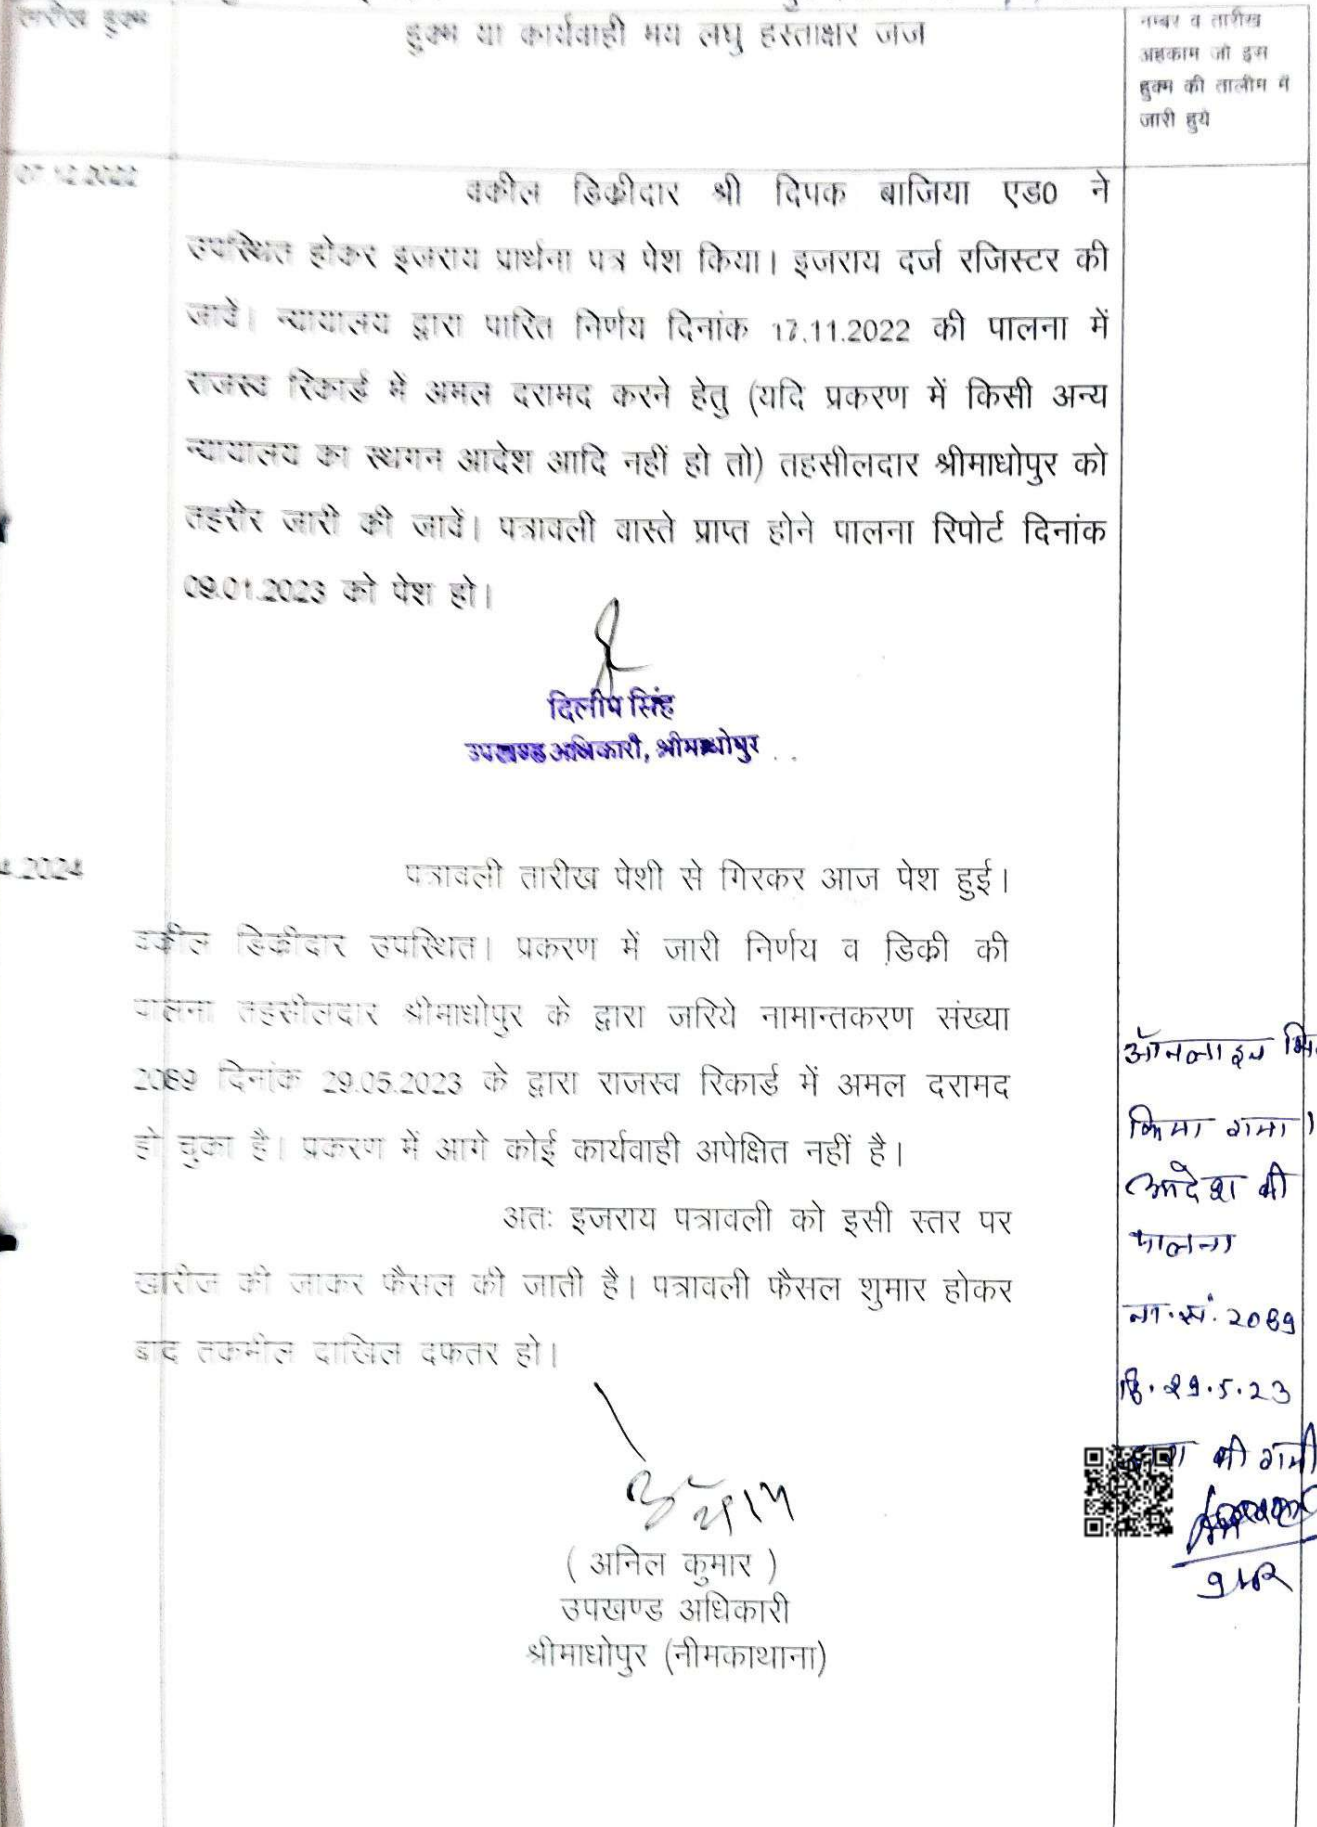 तारीख हुक्म
हुक्म या कार्यवाही मय लघु हस्ताक्षर जज
नम्बर व तारीख
अहकाम जो इस
हुक्म की तालीम में
जारी हुये
07.12.2022
वकील डिक्रीदार श्री दिपक बाजिया एड0 ने
उपस्थित होकर इजराय प्रार्थना पत्र पेश किया। इजराय दर्ज रजिस्टर की
जावें। न्यायालय द्वारा पारित निर्णय दिनांक 17.11.2022 की पालना में
राजस्व रिकार्ड में अमल दरामद करने हेतु (यदि प्रकरण में किसी अन्य
न्यायालय का स्थगन आदेश आदि नहीं हो तो) तहसीलदार श्रीमाधोपुर को
तहरीर जारी की जावें। पत्रावली वास्ते प्राप्त होने पालना रिपोर्ट दिनांक
09.01.2023 को पेश हो।
दिलीप सिंह
उपखण्ड अधिकारी, श्रीमाधोपुर
4.2024
पत्रावली तारीख पेशी से गिरकर आज पेश हुई।
वकील डिकीदार उपस्थित। प्रकरण में जारी निर्णय व डिकी की
पालना तहसीलदार श्रीमाधोपुर के द्वारा जरिये नामान्तकरण संख्या
2089 दिनांक 29.05.2023 के द्वारा राजस्व रिकार्ड में अमल दरामद
हो चुका है। प्रकरण में आगे कोई कार्यवाही अपेक्षित नहीं है।
अतः इजराय पत्रावली को इसी स्तर पर
खारीज की जाकर फैसल की जाती है। पत्रावली फैसल शुमार होकर
बाद तकमील दाखिल दफतर हो।
( अनिल कुमार )
उपखण्ड अधिकारी
श्रीमाधोपुर (नीमकाथाना)
ऑनलाइन
किया गया।
आदेश की
पालना
ना.सं. 2089
दि. 29.5.23
की गयी